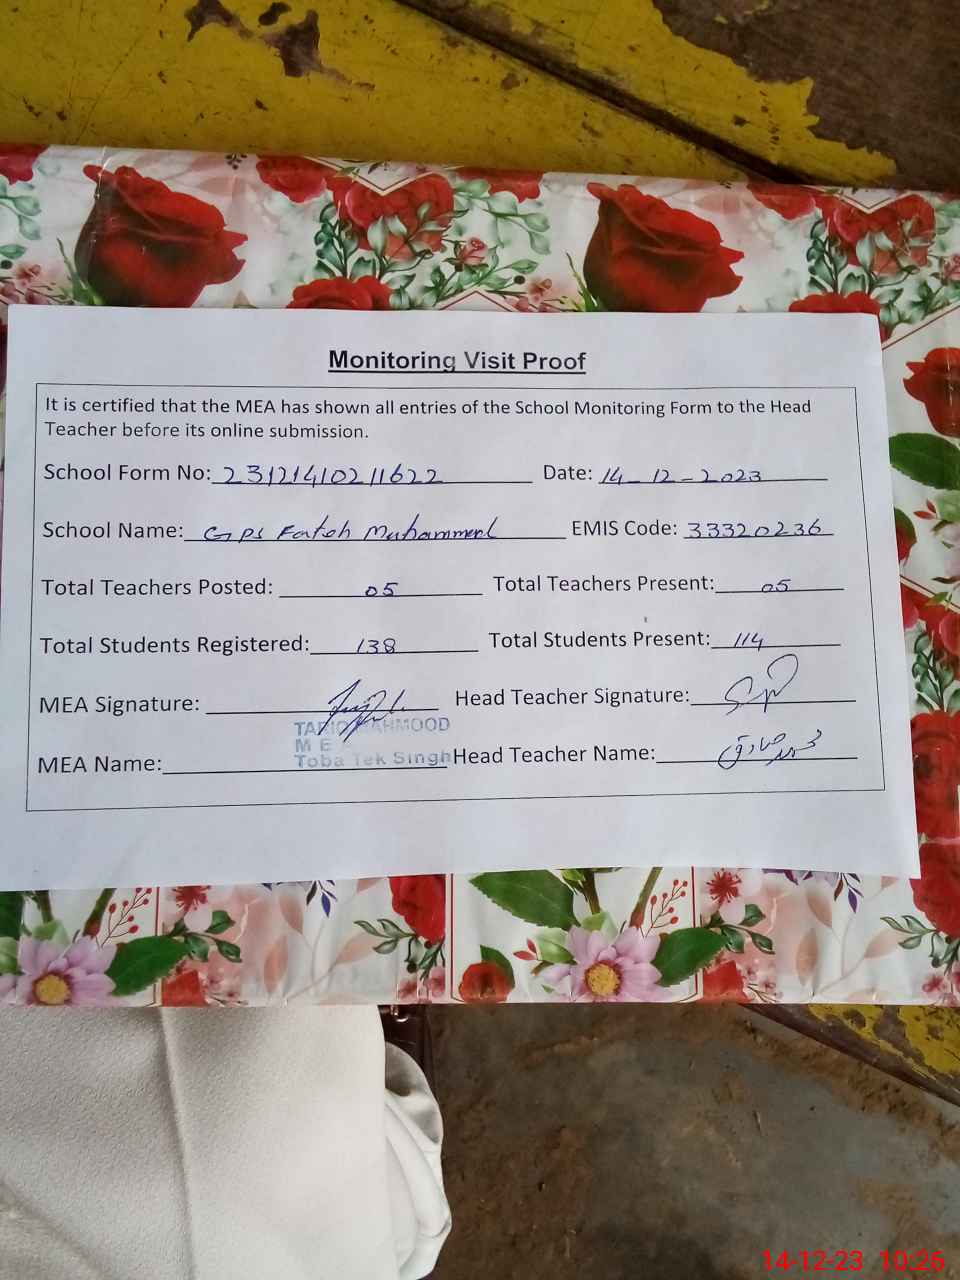 Monitoring Visit Proof
It is certified that the MEA has shown all entries of the School Monitoring Form to the Head
Teacher before its online submission.
School Form No: 23121410211622 Date: 14-12-2023
School Name: GPS Fateh Muhammed EMIS Code: 33320236
Total Teachers Posted: 05 Total Teachers Present: 05
Total Students Registered: 138 Total Students Present: 114
MEA Signature: Head Teacher Signature:
TARIQ MAHMOOD
M E
Toba Tek Singh
MEA Name: Head Teacher Name: محمد صادق
14-12-23 10:26